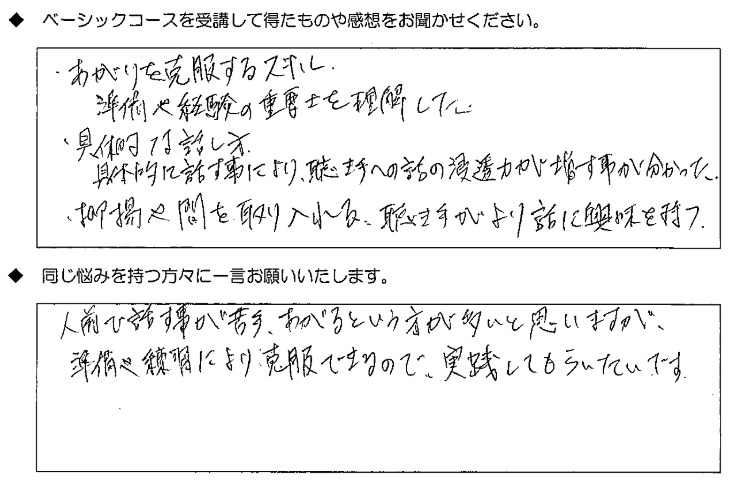 ◆ ベーシックコースを受講して得たものや感想をお聞かせください。
・あがりを克服するスキル.
準備や経験の重要さを理解した.
・具体的な話し方.
具体的に話す事により、聴き手への話の浸透力が増す事が分かった.
・抑揚や間を取り入れる、聴き手がより話に興味を持つ.
◆ 同じ悩みを持つ方々に一言お願いいたします。
人前で話す事が苦手、あがるという方が多いと思いますが、
準備や練習により克服できるので、実践してもらいたいです.